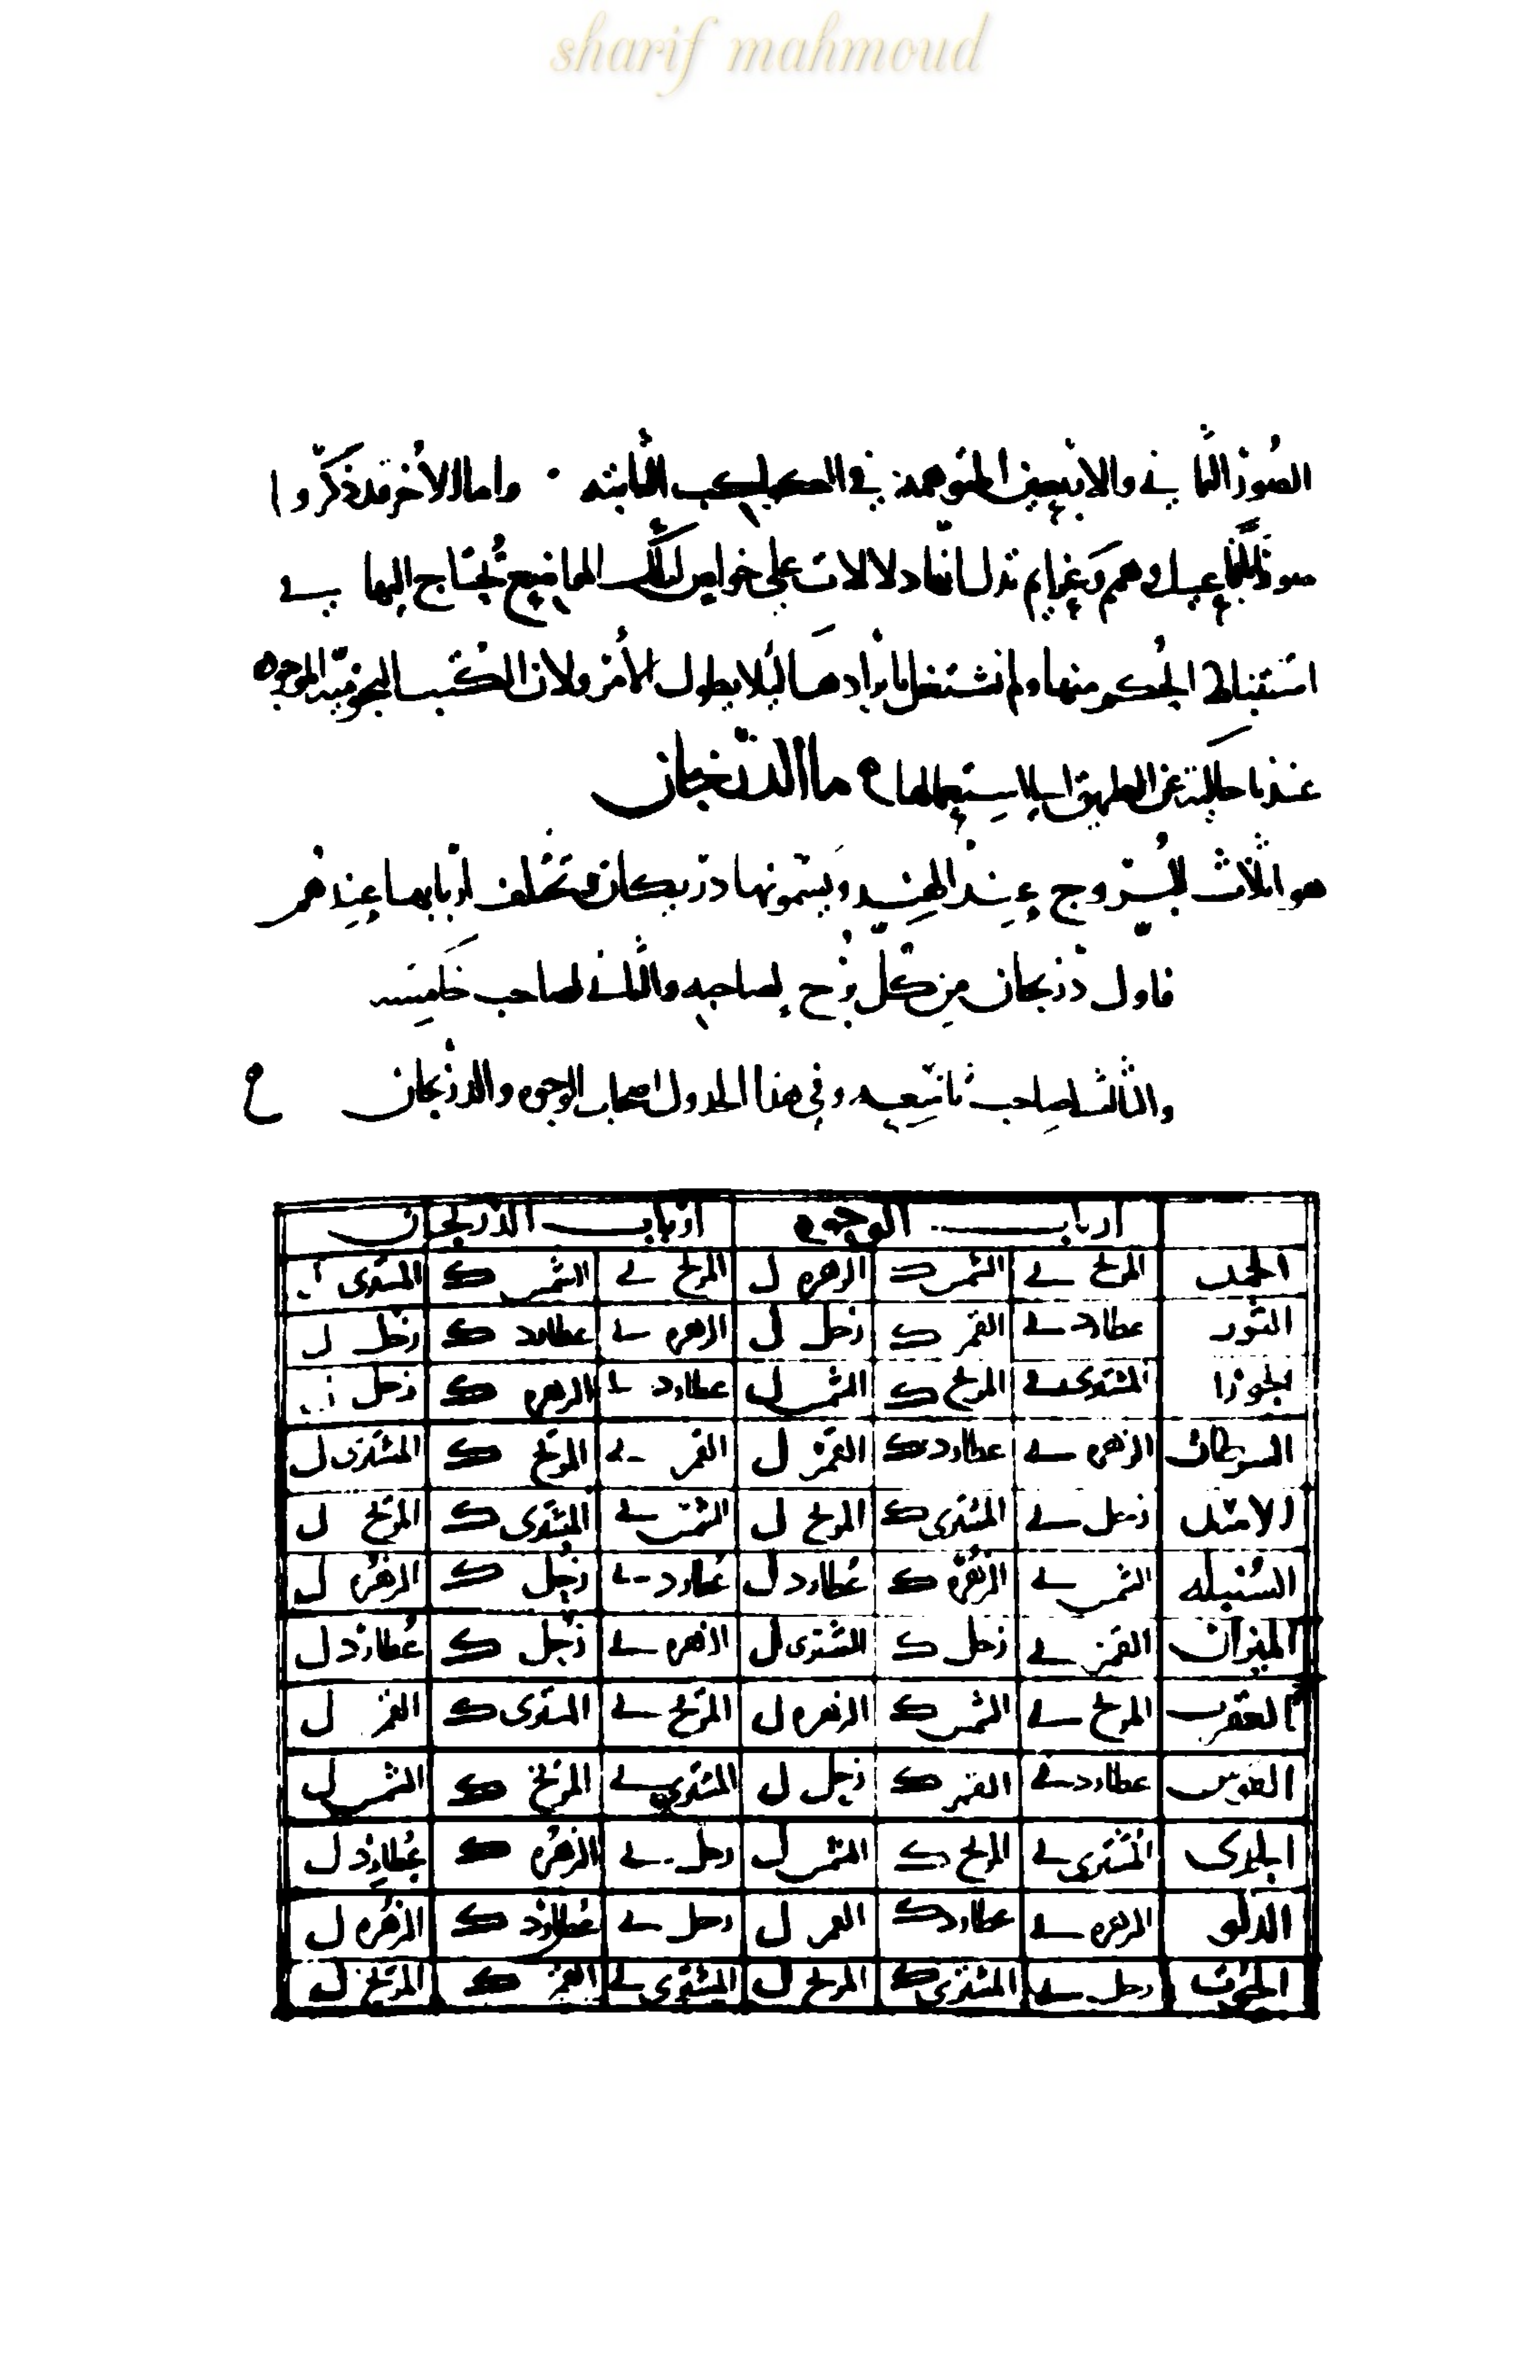 sharif mahmoud
الصور الثماني والاربعين المتوهمة في الكواكب الثابته . واما الاخر فقد ذكروا
على خواص لتلك المواضيع تحتاج اليها في
استنباط الحكم منها ولم نشتغل بايرادها ليلا يطول الامر ولان الكتب النجومية الموجوده
عندنا خالية عن الطريق الي استعمالها ه ما الدريجان
هو اثلاث البروج عند الهند ويسمونها دريكان فتختلف اربابها عندهم
فاول دريجان من كل برج لصاحبه والثاني لصاحب خامسه
والثالث لصاحب تاسعه وفي هذا الجدول اصحاب الوجوه والدريجان
ارباب الوجوه ارباب الدريجان
الحمل المريخ ي الشمس ك الزهره ل المريخ ي الشمس ك المشترى
الثور عطارد ي القمر ك زحل ل الزهره ي عطارد ك زحل ل
الجوزا المشترى ي المريخ ك الشمس ل عطارد ي الزهره ك زحل
السرطان الزهره ي عطارد ك القمر ل القمر ي المريخ ك المشترى ل
الاسد زحل ي المشترى ك المريخ ل الشمس ي المشترى ك المريخ ل
السنبله الشمس ي الزهره ك عطارد ل عطارد ي زحل ك الزهره ل
الميزان القمر ي زحل ك المشترى ل الزهره ي زحل ك عطارد ل
العقرب المريخ ي الشمس ك الزهره ل المريخ ي المشترى ك القمر ل
القوس عطارد ي القمر ك زحل ل المشترى ي المريخ ك الشمس ل
الجدى المشترى ي المريخ ك الشمس ل زحل ي الزهره ك عطارد ل
الدلو الزهره ي عطارد ك القمر ل زحل ي عطارد ك الزهره ل
الحوت زحل ي المشترى ك المريخ ل المشترى ي القمر ك المريخ ل